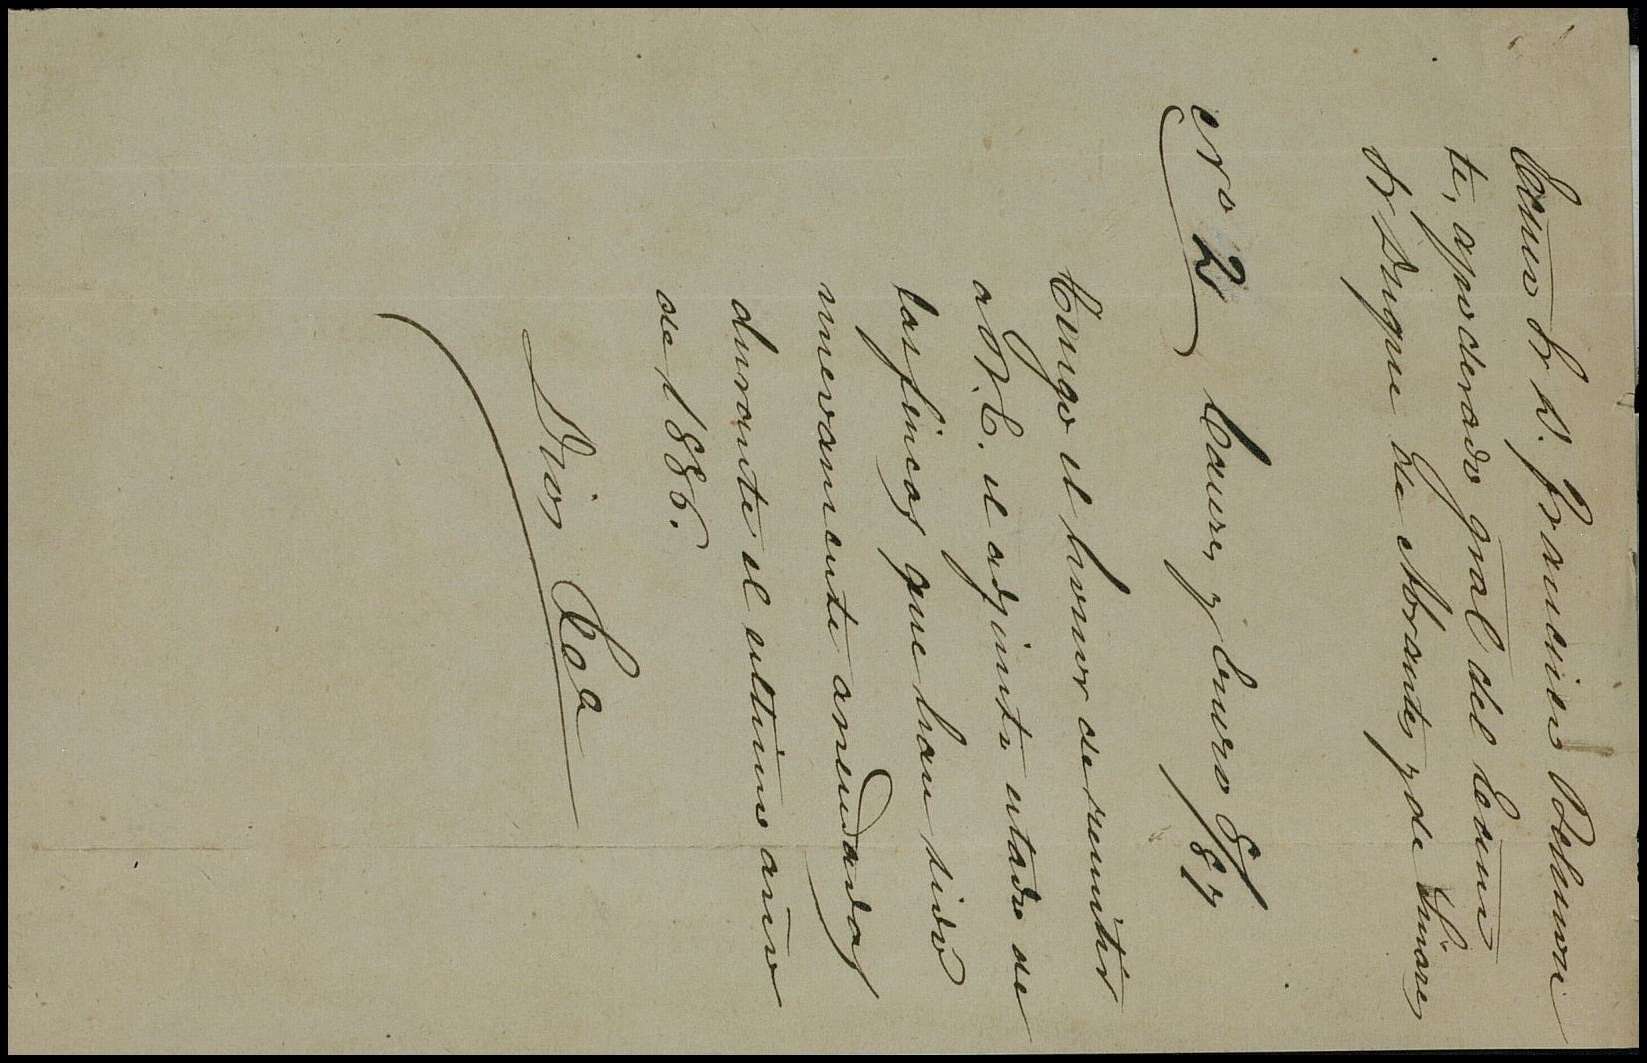 Excmo Sr D. Francisco Belmon
te, apoderado gral del Excmo
Sr Duque de Abrantes y de Linares
Nº 2 Caures y Enero 8/87
Tengo el honor de remitir
a V.E. el adjunto estado de
las fincas que han sido
nuevamente arrendadas
durante el ultimo año
de 1886.
Dios &a